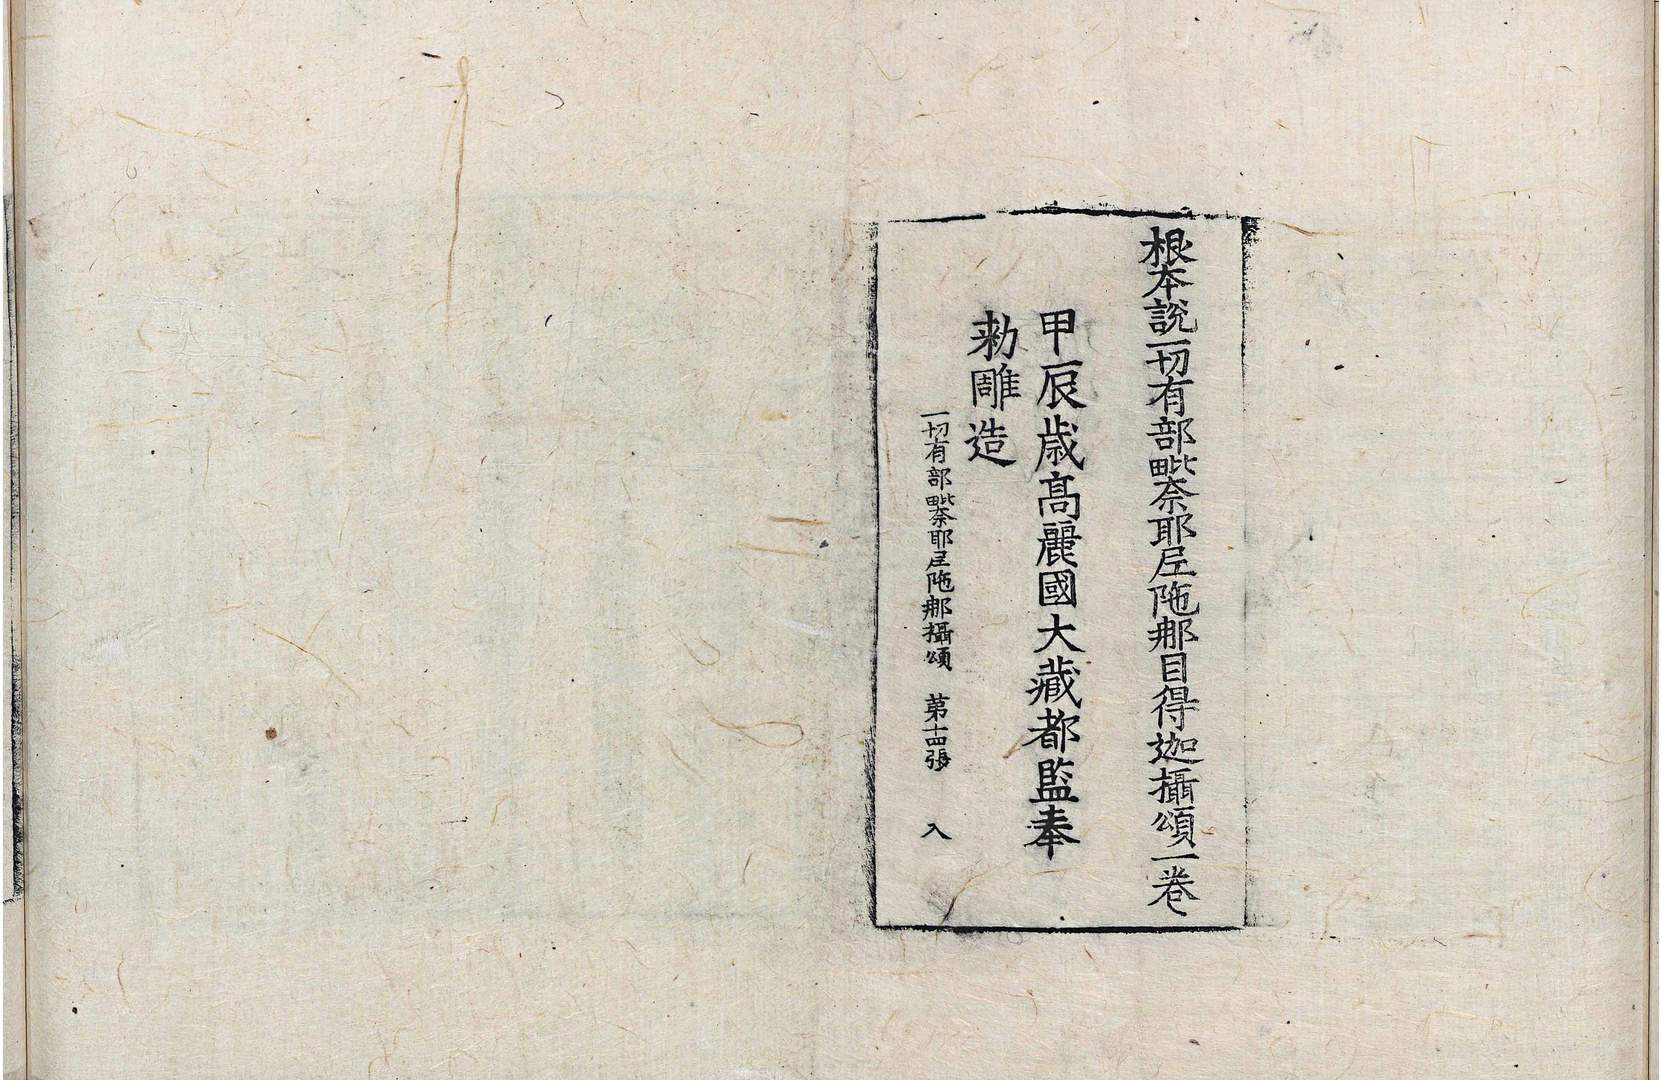 根本說一切有部毗奈耶尼陁那目得迦攝頌一卷
甲辰歳高麗國大藏都監奉
勑雕造
一切有部毗奈耶尼陁那攝頌 第十四張 入